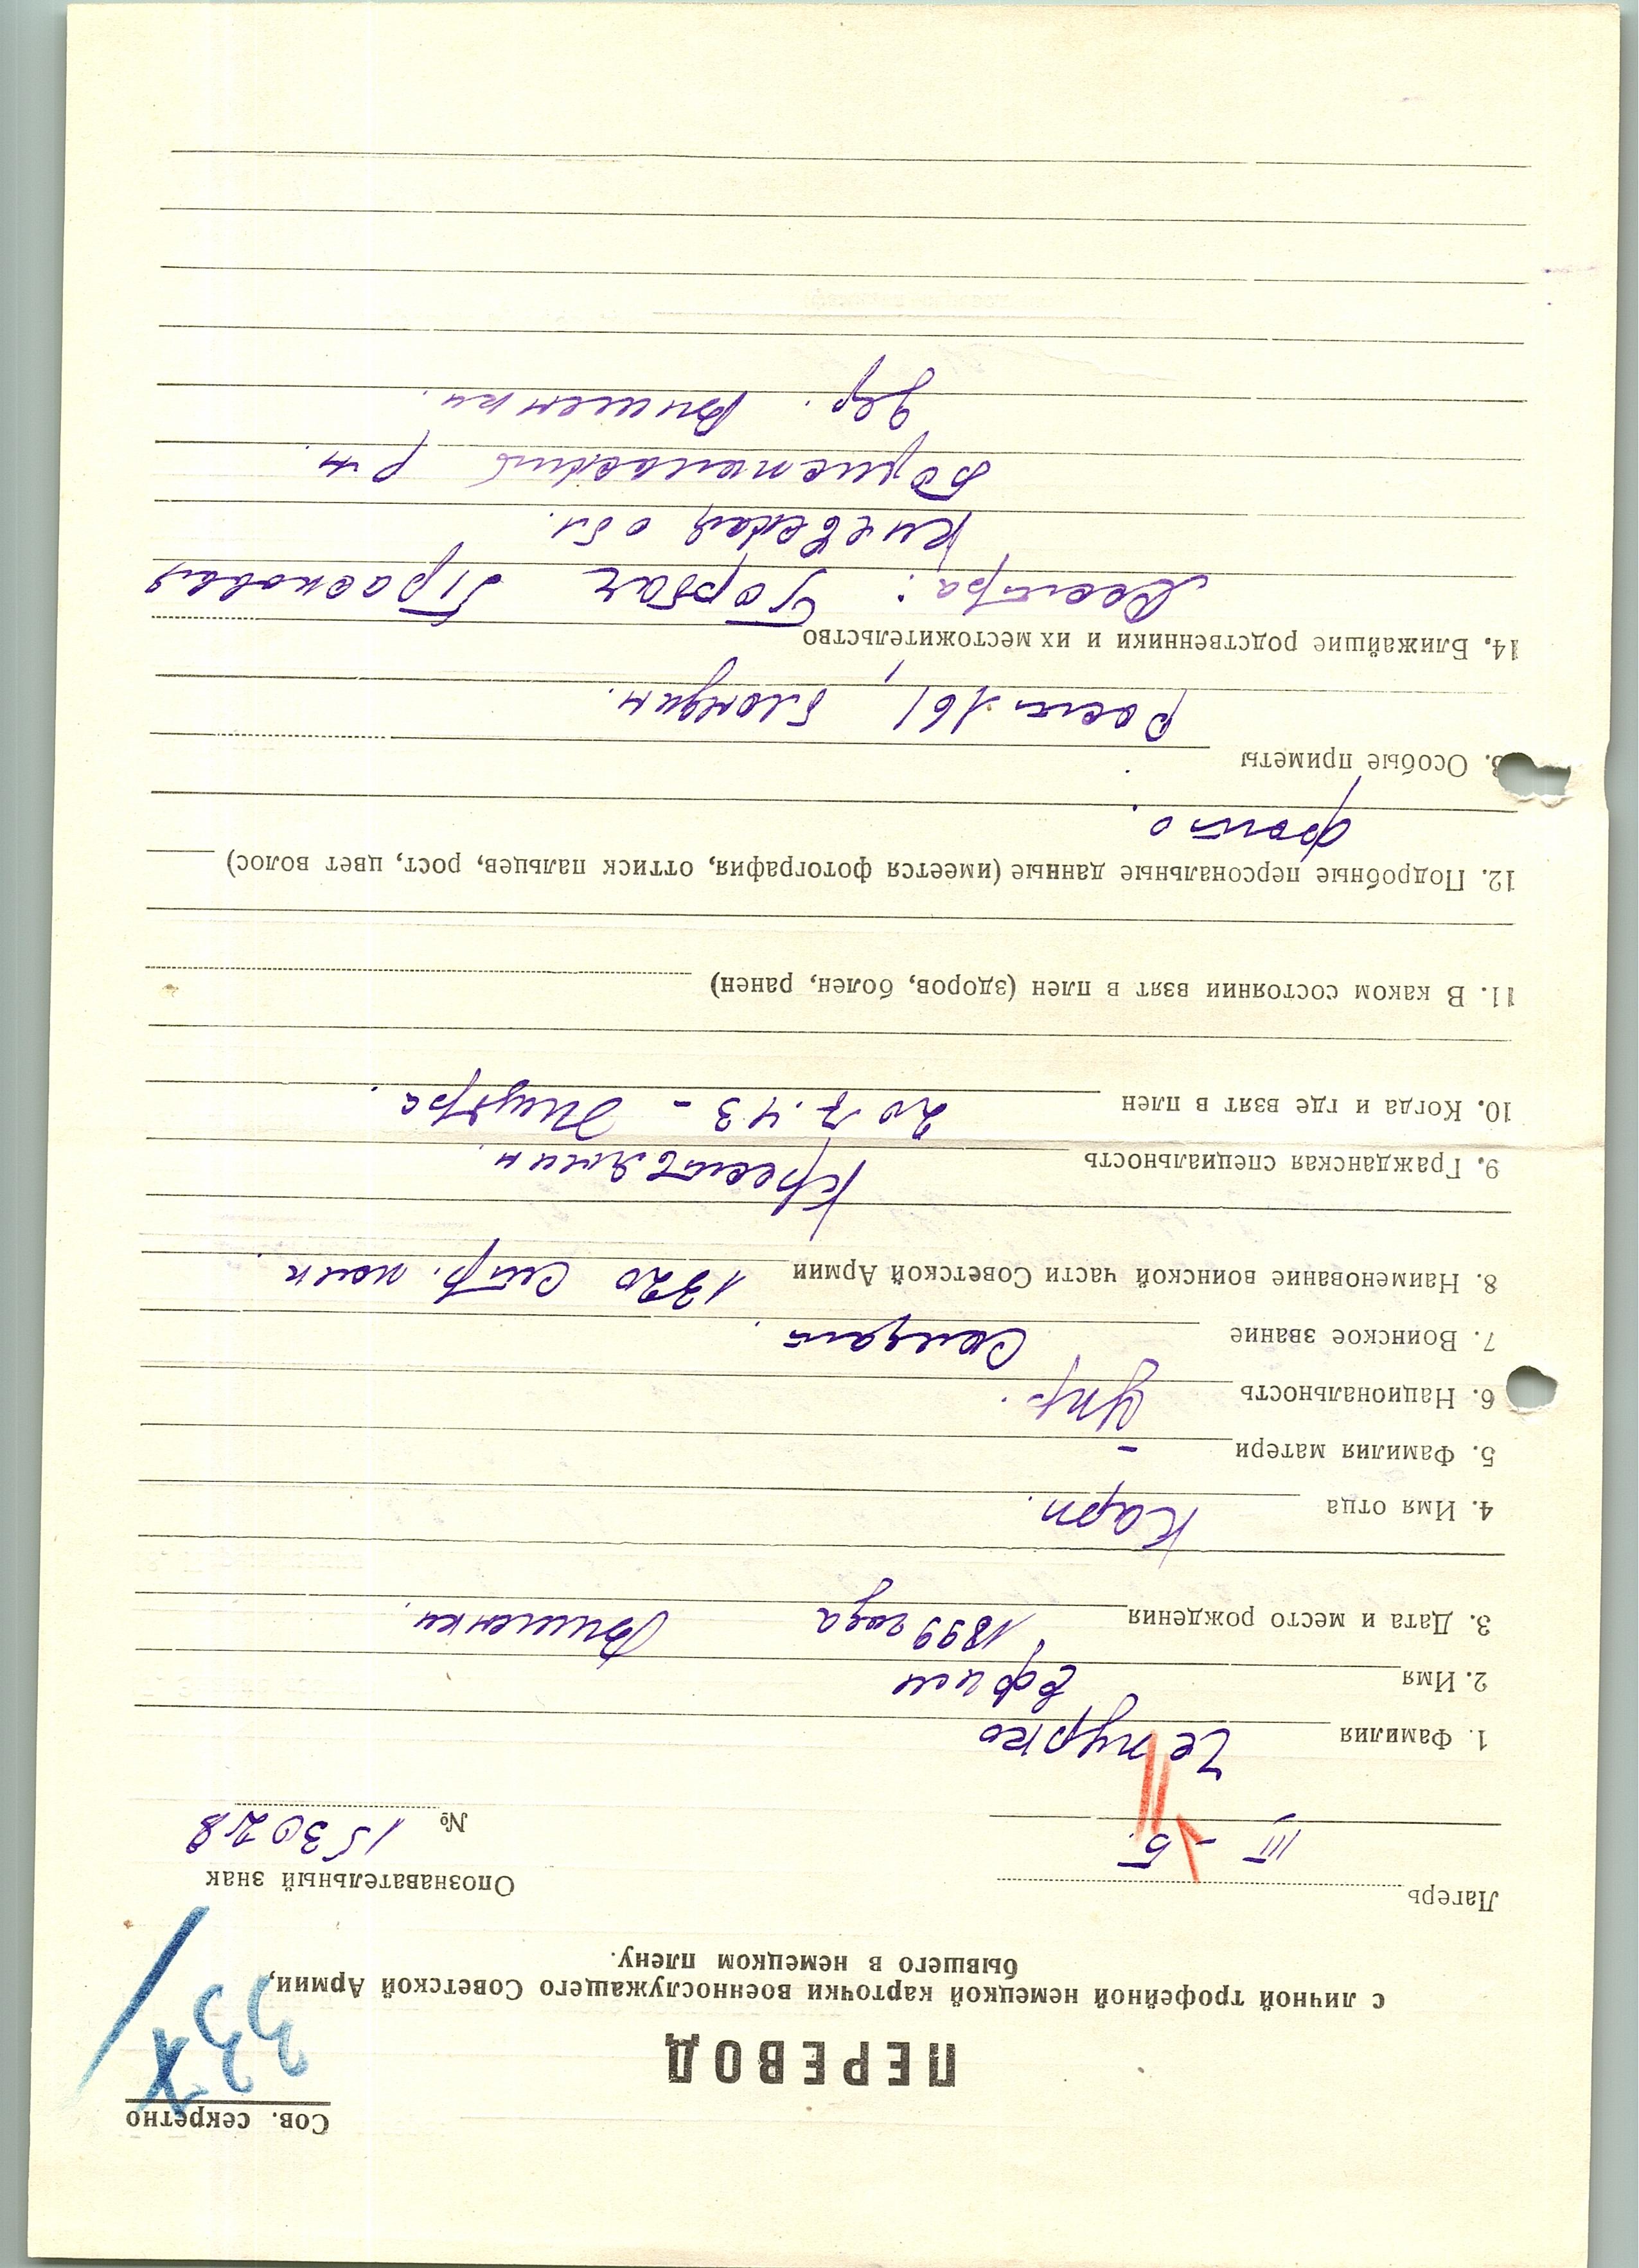 Сов. секретно
ПЕРЕВОД
с личной трофейной немецкой карточки военнослужащего Советской Армии,
бывшего в немецком плену.
Лагерь III-Б. Опознавательный знак
№ 153028
1. Фамилия Чепурко
2. Имя Ефим
3. Дата и место рождения 1899 года Вишенки.
4. Имя отца Карп.
5. Фамилия матери –
6. Национальность Укр.
7. Воинское звание Солдат.
8. Наименование воинской части Советской Армии 1320 стр. полк
9. Гражданская специальность Крестьянин.
10. Когда и где взят в плен 20.7.43 –
11. В каком состоянии взят в плен (здоров, болен, ранен)
12. Подробные персональные данные (имеется фотография, оттиск пальцев, рост, цвет волос)
фото.
3. Особые приметы
Рост 161, блондин.
14. Ближайшие родственники и их местожительство
Сестра: Горбач Прасковья
Киевская обл.
р-н.
дер. Вишенки.